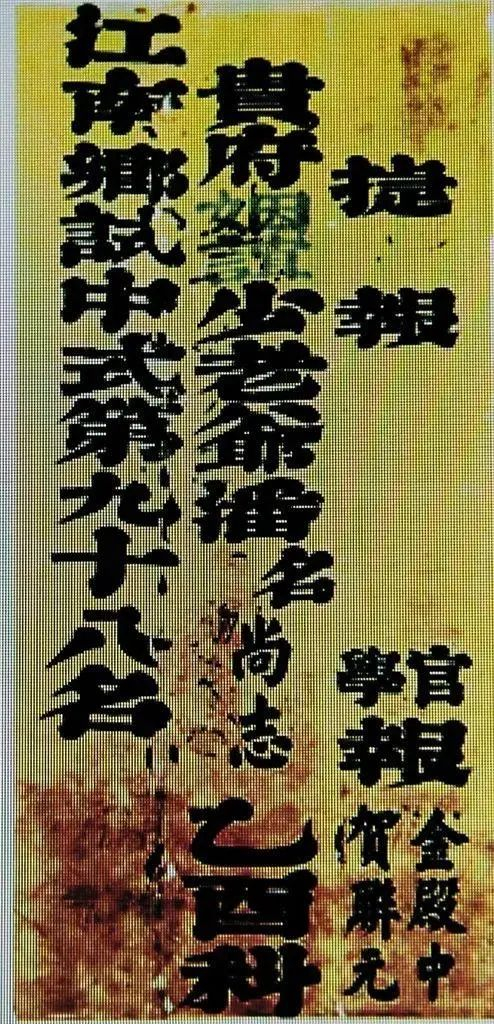 捷報
官學報
金殿中
賀聯元
貴府姻少老爺潘名尚志乙酉科
江南鄉試中式第九十八名